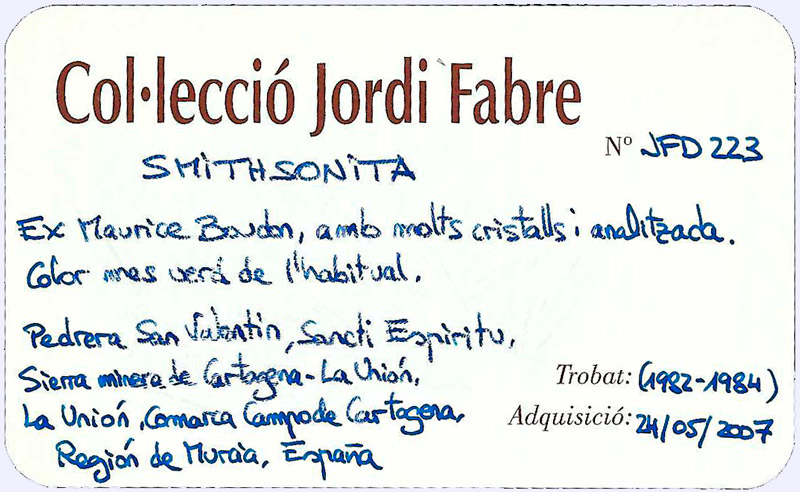 Col·lecció Jordi Fabre
Nº JFD 223
SMITHSONITA
Ex Maurice Boudon, amb molts cristalls i analitzada.
Color mes verd de l'habitual.
Pedrera San Valentin, Sancti Espiritu,
Sierra minera de Cartagena-La Unión,
La Unión, Comarca Campo de Cartagena,
Región de Murcia, España
Trobat: (1982-1984)
Adquisició: 24/05/2007